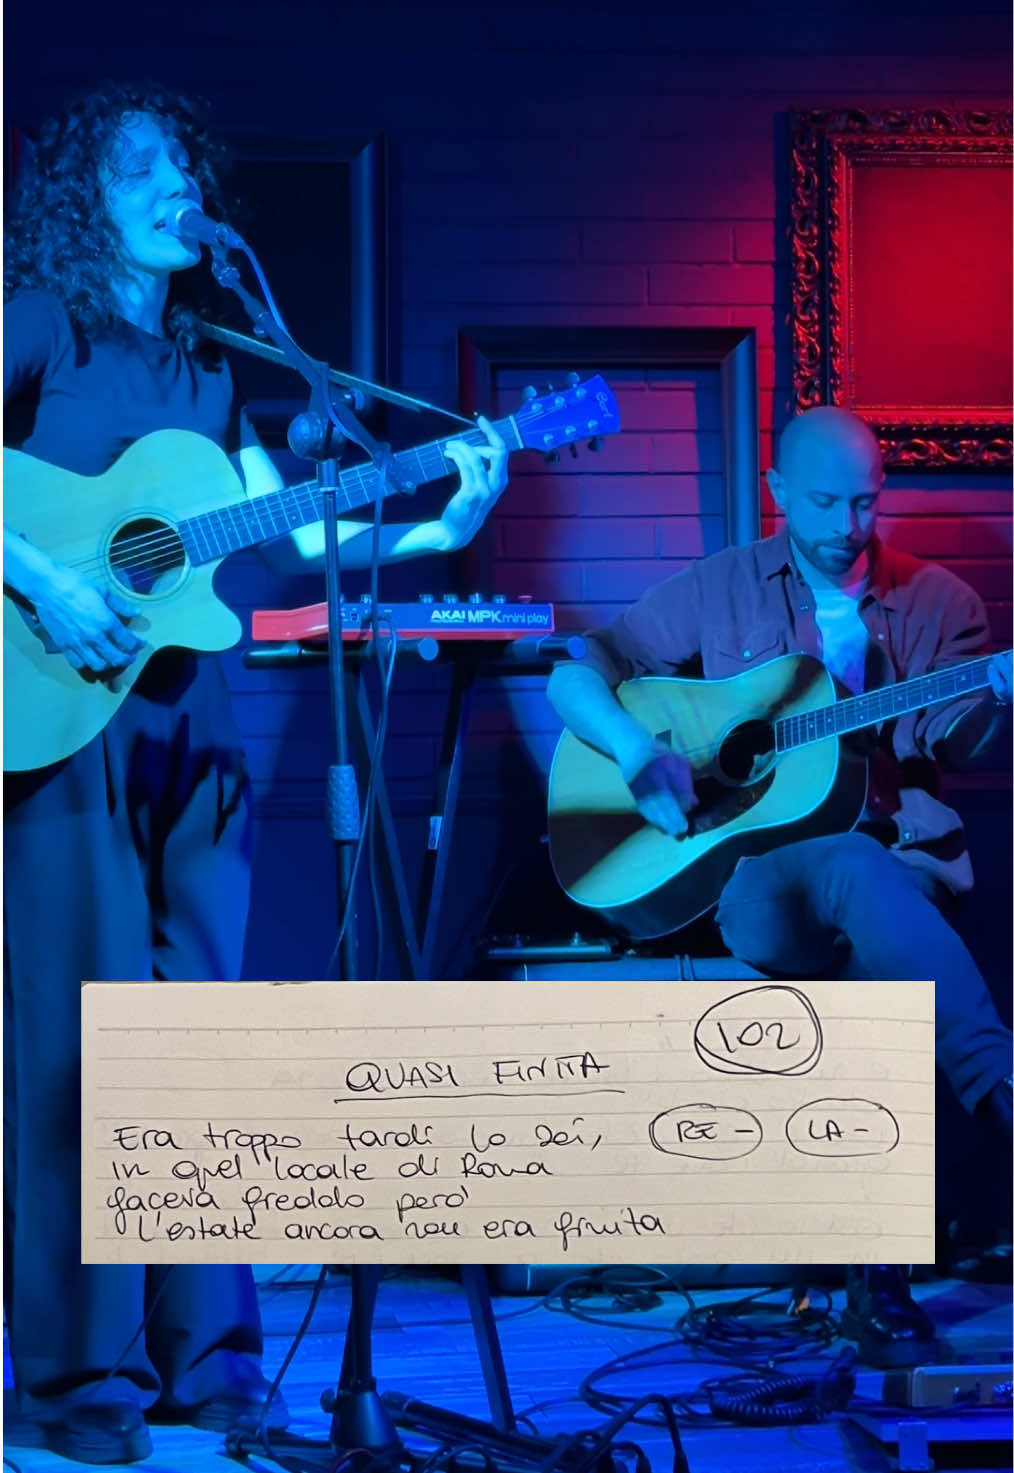 Cort
AKAI MPK mini play
PROFESSIONAL
102
QUASI FINITA
Era troppo tardi lo sai,
RE -
LA -
in quel locale di Roma
faceva freddo però
l'estate ancora non era finita